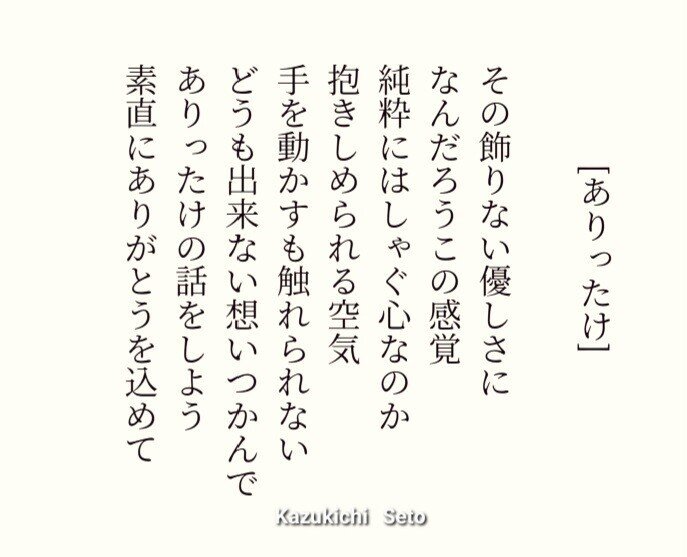 [ありったけ]
その飾りない優しさに
なんだろうこの感覚
純粋にはしゃぐ心なのか
抱きしめられる空気
手を動かすも触れられない
どうも出来ない想いつかんで
ありったけの話をしよう
素直にありがとうを込めて
Kazukichi Seto